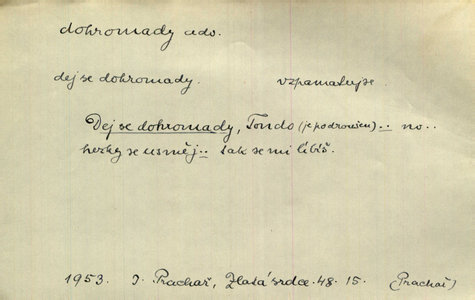 dohromady adv.
dej se dohromady. vzpamatuj se
Dej se dohromady, Tondo (je podroušen) .. no..
hezky se usměj.. tak se mi líbíš.
1953. I. Prachař, Zlatá srdce. 48. 15. (Prachař)